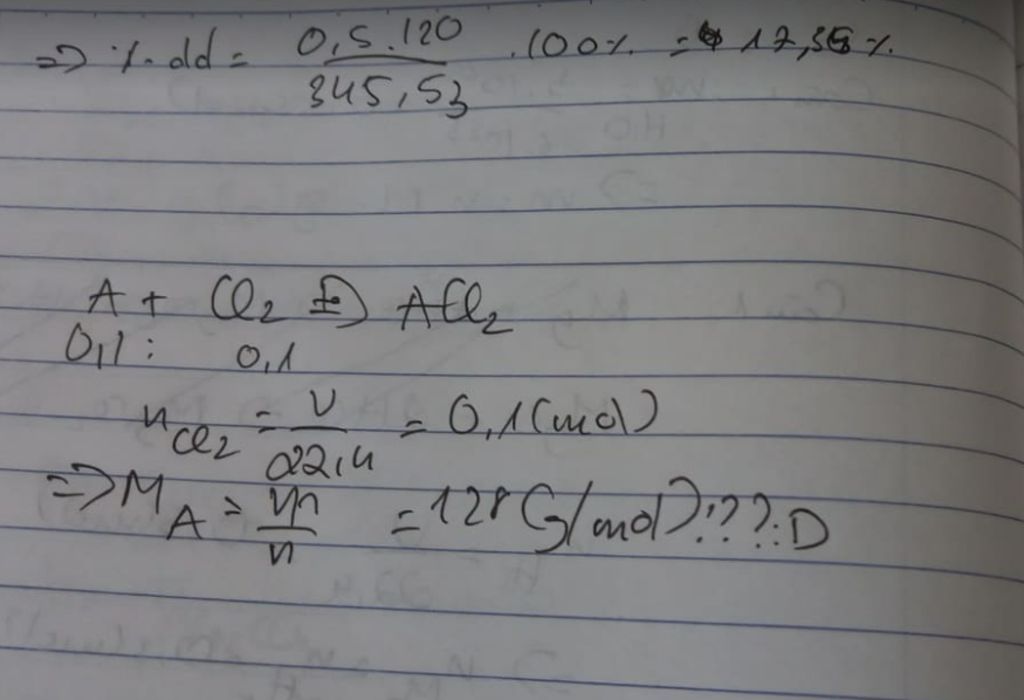 => % dd = 0,5.120 / 345,53 .100% = 17,36%
A + Cl2 => ACl2
0,1 : 0,1
nCl2 = V / 22,4 = 0,1 (mol)
=> MA = m / n = 128 (G/mol)??? :D